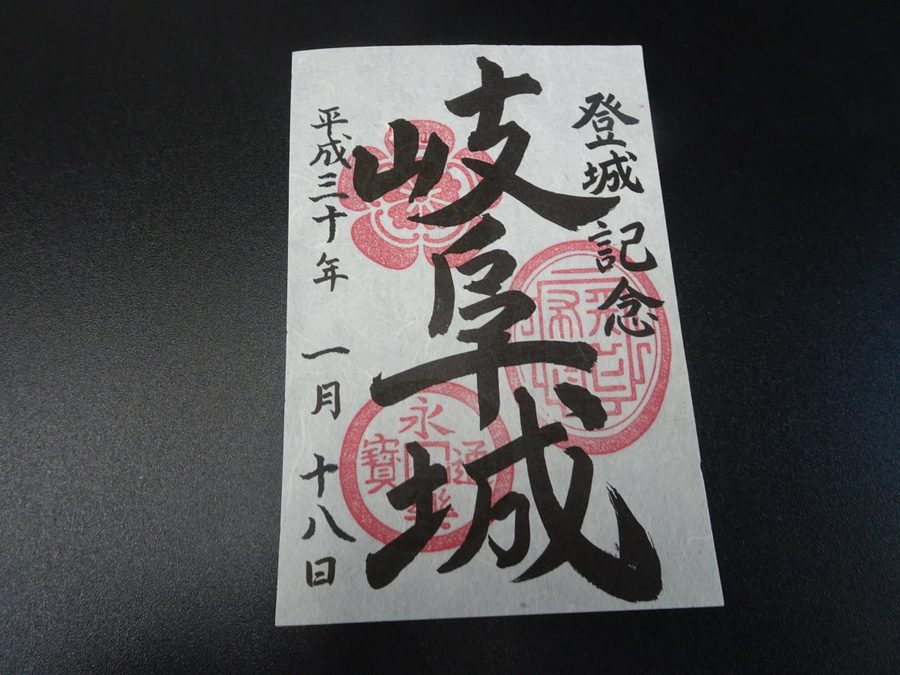 登城記念
岐阜城
平成三十年 一月 十八日
永樂通寶